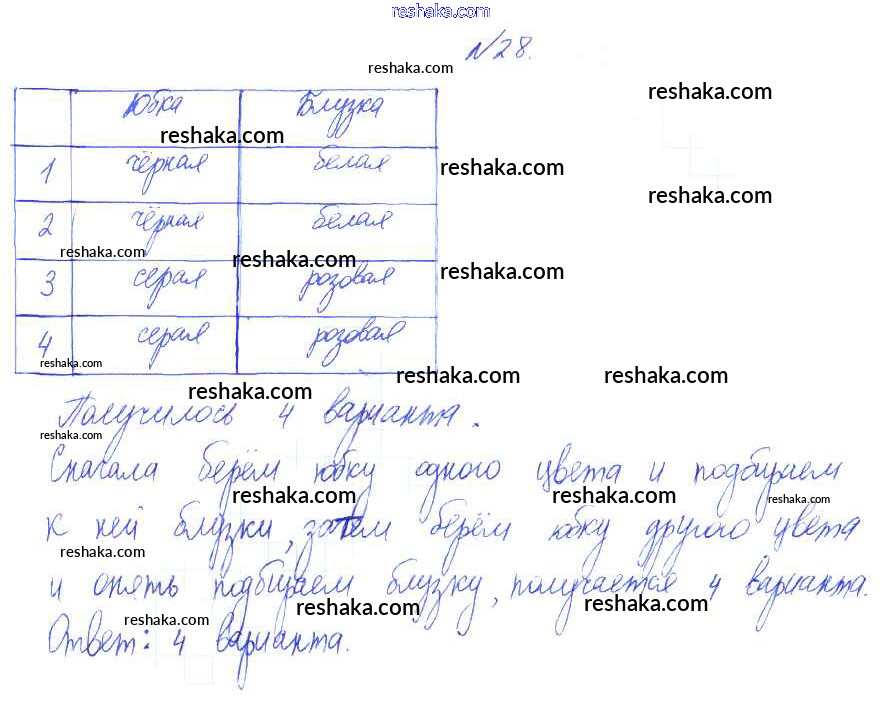 reshaka.com
№28.
reshaka.com
reshaka.com
Юбка Блузка
reshaka.com
1 чёрная белая
reshaka.com
reshaka.com
2 чёрная белая
reshaka.com
reshaka.com
3 серая розовая
reshaka.com
4 серая розовая
reshaka.com
reshaka.com
reshaka.com
reshaka.com
Получилось 4 варианта.
reshaka.com
Сначала берём юбку одного цвета и подбираем
reshaka.com
reshaka.com
reshaka.com
к ней блузки, затем берём юбку другого цвета
reshaka.com
и опять подбираем блузку, получается 4 варианта.
reshaka.com
reshaka.com
reshaka.com
Ответ: 4 варианта.